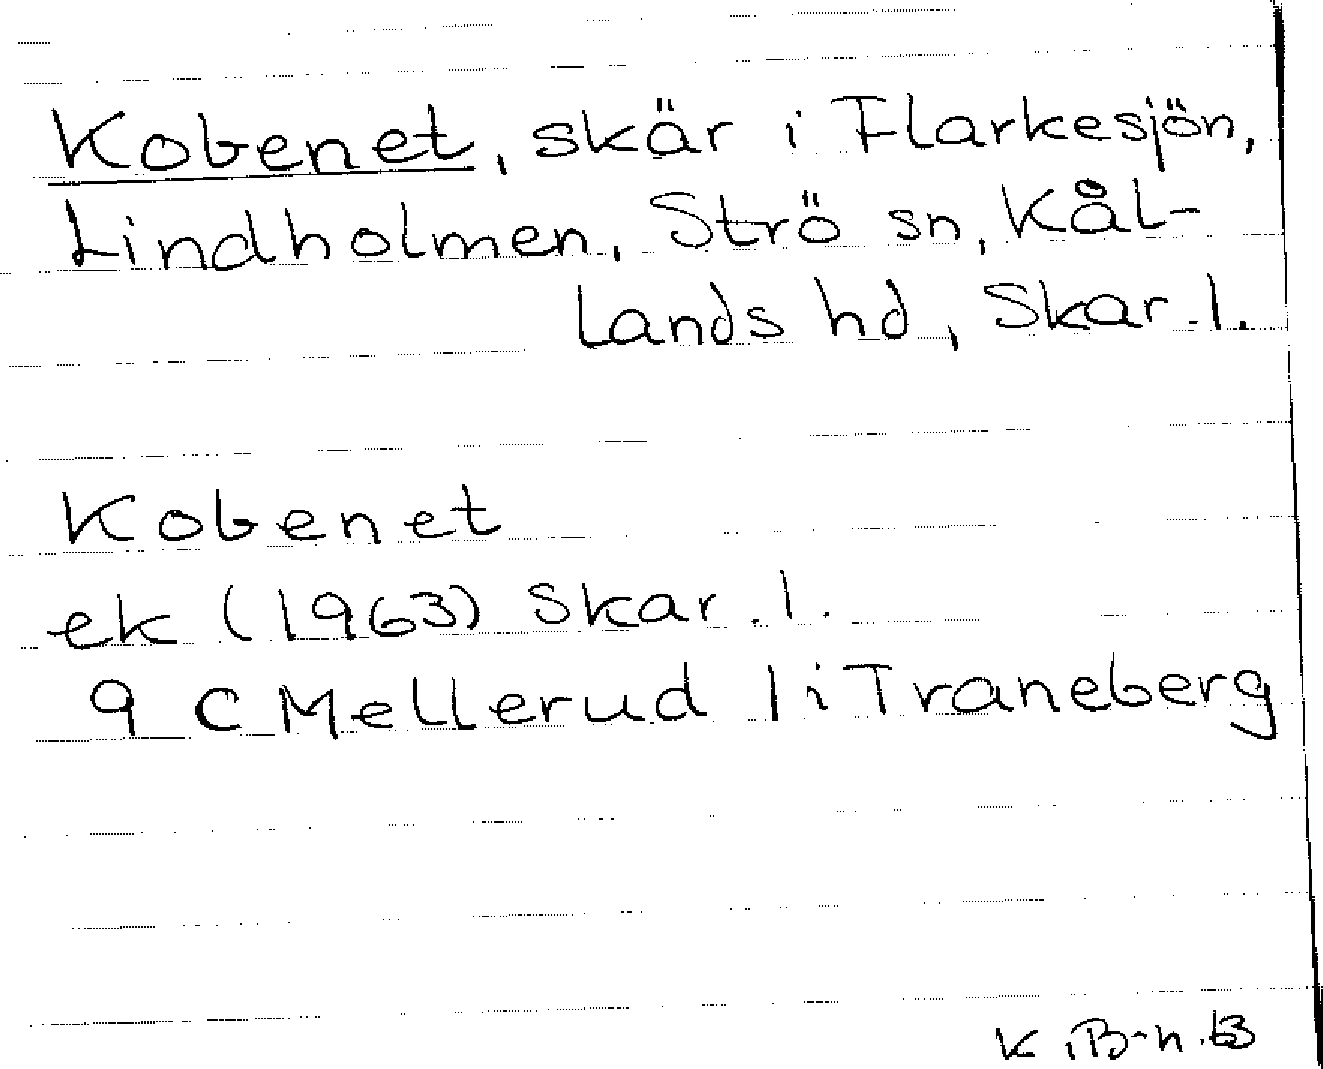 Kobenet, skär i Flarkesjön,
Lindholmen, Strö sn, Kål-
lands hd, Skar. l.
Kobenet
ek (1963) Skar. l.
9 C Mellerud 1 i Traneberg
K i B-n. 63